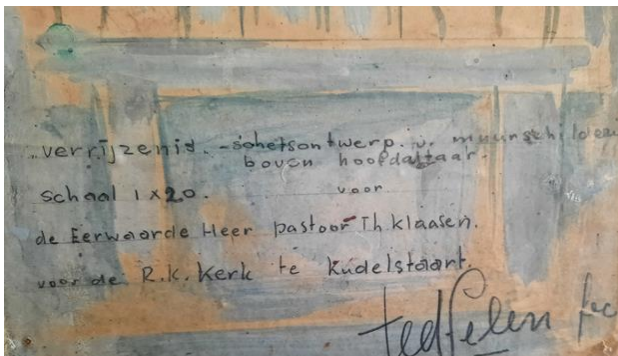 „verrijzenis. - schetsontwerp. v. muurschilder
boven hoofdaltaar.
schaal 1 x 20. voor
de Eerwaarde Heer pastoor Th. klaasen.
voor de R.K. Kerk te Kudelstaart.
ted felen fec